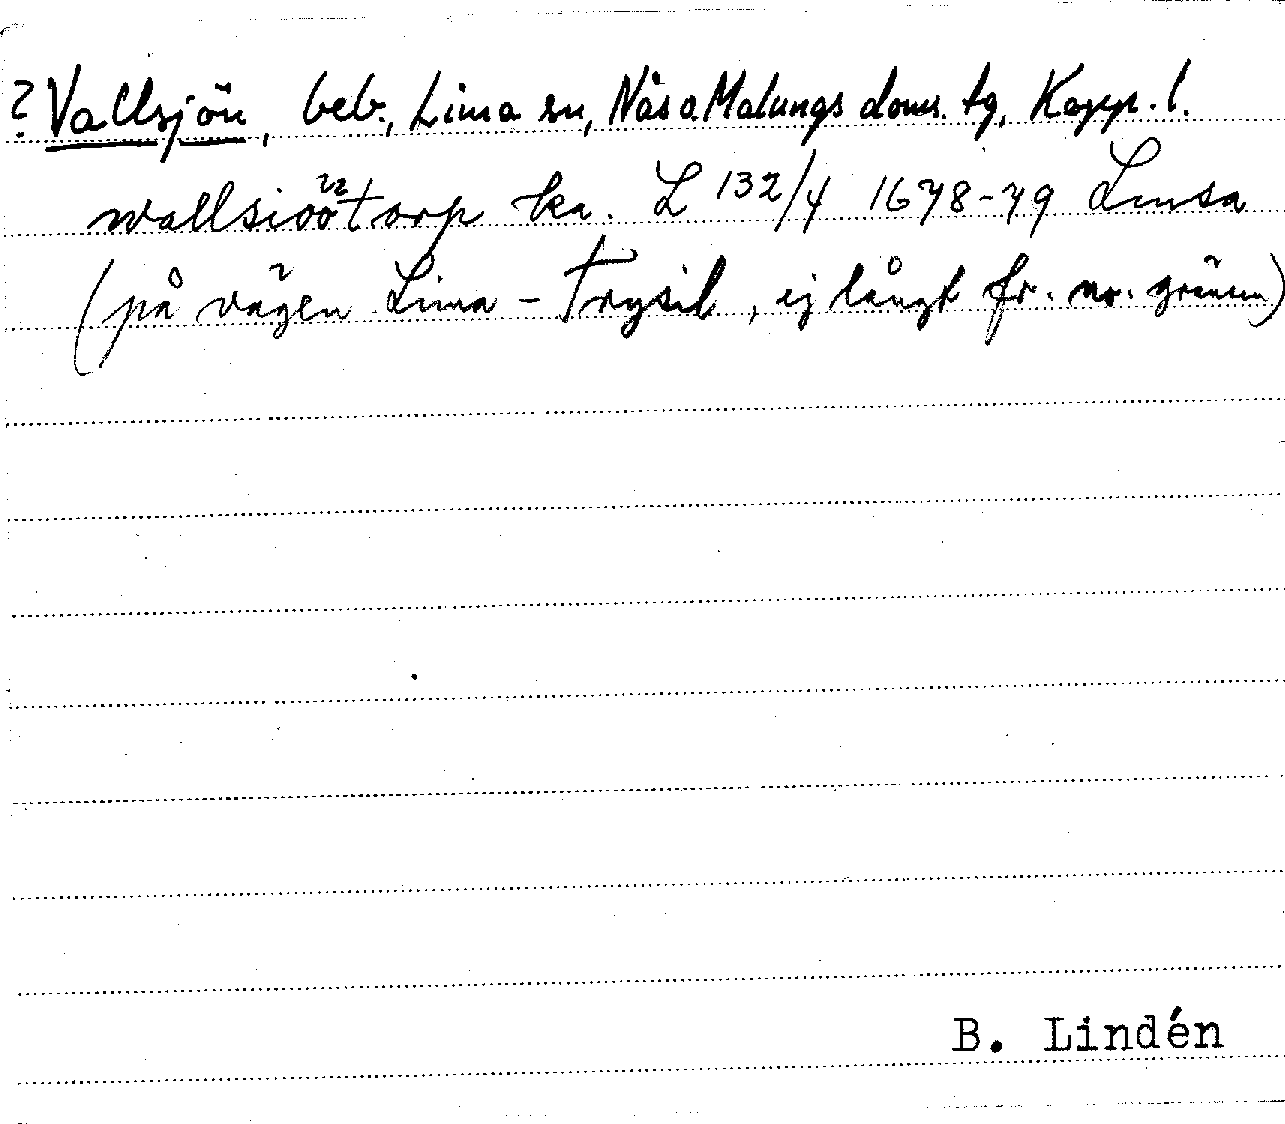 ? Vallsjön, beb., Lima sn, Nås o. Malungs doms. tg, Kopp. l.
wallsiöötorp ka. L 132/4 1678-79
(på vägen Lima - Trysil, ej långt fr. no. gränsen)
B. Lindén